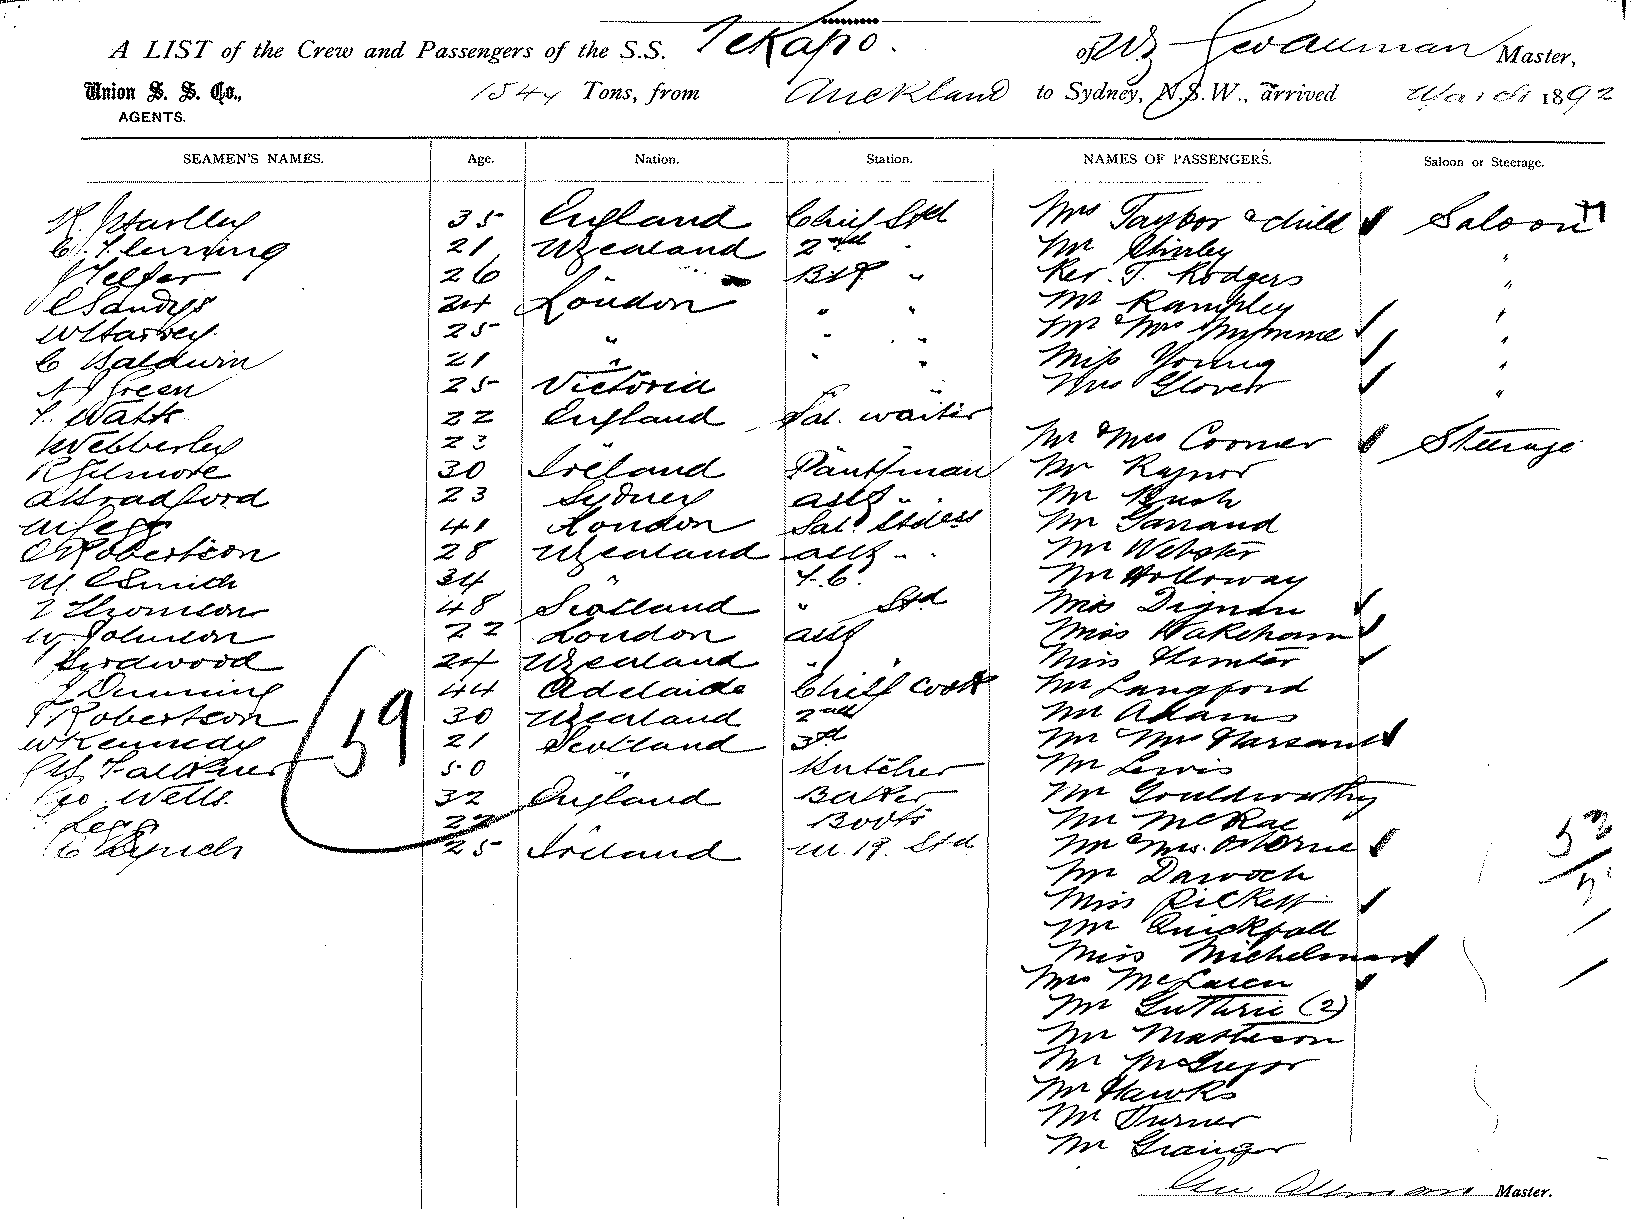 A LIST of the Crew and Passengers of the S.S. Tekapo. of NZ Geo Allman Master,
Union S. S. Co., 1544 Tons, from Auckland to Sydney, N.S.W., arrived March 1892
AGENTS.
SEAMEN'S NAMES. Age. Nation. Station. NAMES OF PASSENGERS. Saloon or Steerage.
R. Hartley 35 England Chief Std Mrs Taylor & child Saloon
C. Fleming 21 NZealand 2nd " Mr Stinley "
J Telfer 26 " B & P " Rev. T. Rodgers "
C Sandys 24 London " " Mr Rampley "
W Harvey 25 " " " Mr & Mrs "
C Baldwin 21 " " " Miss Young "
A J Green 25 Victoria Mrs Glover "
F. Watts 22 England Sal. waiter
Webberley 23 Mr & Mrs Coomer Steerage
R Gilmore 30 Ireland Pantryman Mr Raynor
A Bradford 23 Sydney asst " Mr Bush
41 London Sal. Stdess Mr Garrand
C Robertson 28 NZealand asst " Mr Webster
M. C Smith 34 " F.C. Mr Holloway
T Thomson 48 Scotland " Std Miss Dignan
W Johnson 22 London asst Miss Wakeham
Byrdwood 24 NZealand " " Miss Hunter
J Dunning 44 Adelaide Chief Cook Mr Langford
T Robertson 30 NZealand 2nd Mr Adams
W Kennedy 21 Scotland 3rd Mr Mrs Harsant
Falkner 50 " Butcher Mr Lewis
Geo Wells 32 England Baker Mr Gouldworthy
Legg 22 " Boots Mr McRae
C Lynch 25 Ireland M. 19. Std Mr & Mrs. Osborne
59
Mr Darroch
Miss Rickett
Mr Quickfall
Miss Michelmore
Mrs McLaren
Mr Guthrie (2)
Mr Matheson
Mr McGregor
Mr Hawks
Mr Turner
Mr Grainger
Geo Allman Master.